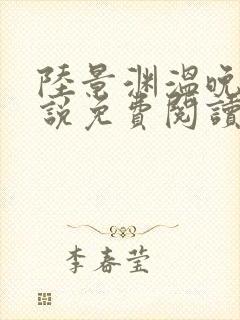 陸景渊溫晚
說免費閱讀
李春莹